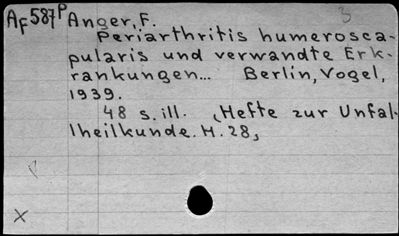 Af 587P Anger, F. 3
Periarthritis humerosca-
pularis und verwandte Erk-
rankungen... Berlin, Vogel,
1939.
48 s. ill. (Hefte zur Unfal-
lheilkunde. H. 28,
X